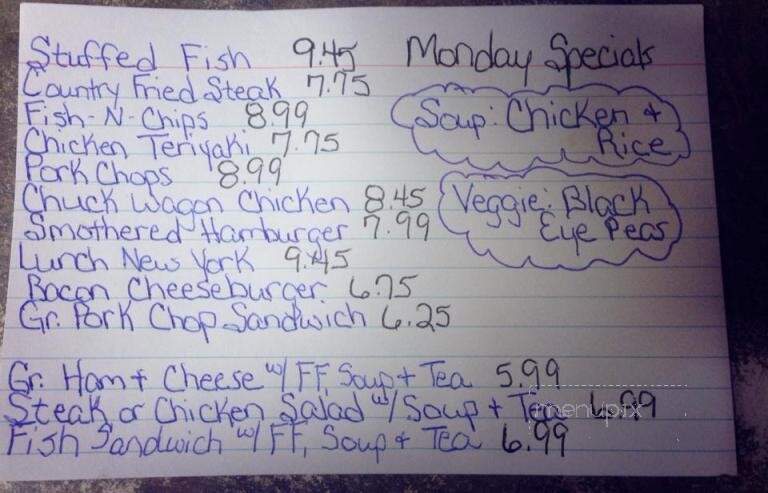 Stuffed Fish 9.45 Monday Specials
Country Fried Steak 7.75
Fish-N-Chips 8.99
Soup: Chicken +
Rice
Chicken Teriyaki 7.75
Pork Chops 8.99
Chuck Wagon Chicken 8.45
Veggie: Black
Eye Peas
Smothered Hamburger 7.99
Lunch New York 9.45
Bacon Cheeseburger 6.75
Gr. Pork Chop Sandwich 6.25
Gr. Ham + Cheese w/ FF, Soup + Tea 5.99
Steak or Chicken Salad w/ Soup + Tea 6.99
menupix
Fish Sandwich w/ FF, Soup + Tea 6.99